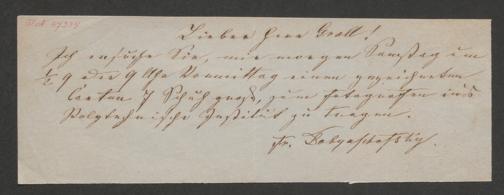 Lieber Herr Groll!
Ich ersuche Sie, mir morgen Samstag um
½ 9 oder 9 Uhr Vormittag einen gezeichneten
Carton 7 Schuh groß, zum fotografen ins
Polytechnische Institut zu tragen.
Fr.